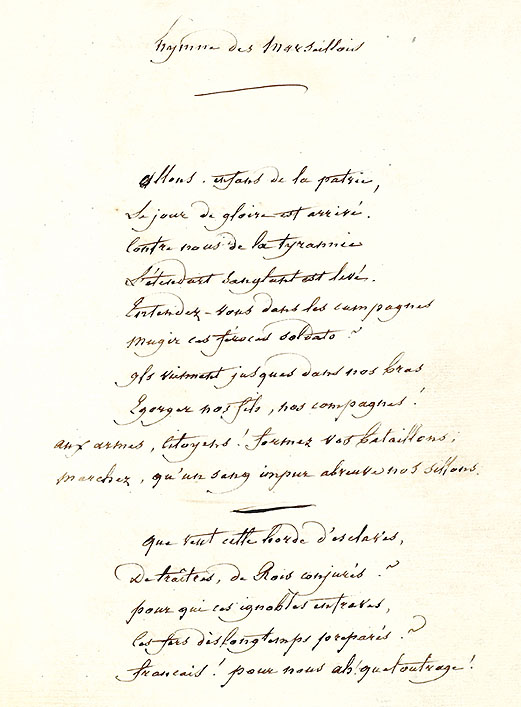 hymne des Marseillois
allons enfans de la patrie,
Le jour de gloire est arrivé.
Contre nous de la tyrannie
L'étendart sanglant est levé.
Entendez-vous dans les campagnes
mugir ces féroces soldats ?
Ils viennent jusques dans nos bras
Egorger nos fils, nos compagnes !
aux armes, Citoyens ! formez vos bataillons ;
marchez, qu'un sang impur abreuve nos sillons.
que veut cette horde d'esclaves,
De traîtres, de Rois conjurés ?
pour qui ces ignobles entraves,
ces fers dès longtemps preparés ?
français ! pour nous ah ! quel outrage !